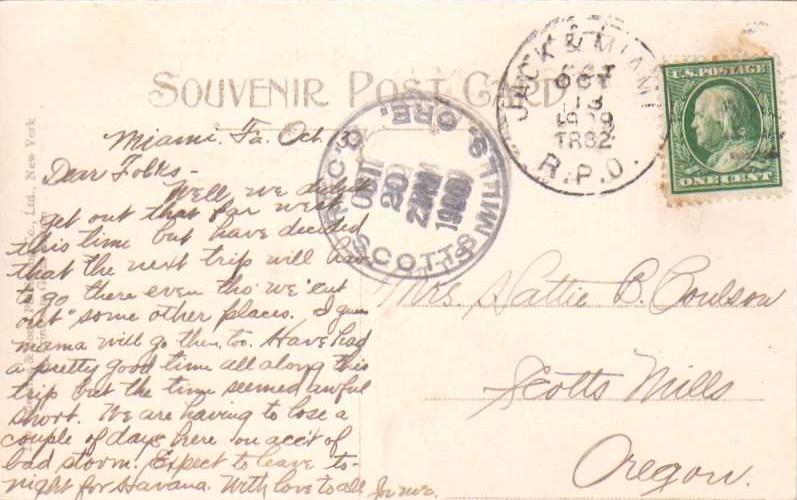 SOUVENIR POST CARD
JACK & MIAMI
OCT
13
1909
TR82
R.P.O.
U.S. POSTAGE
ONE CENT
REC'D
SCOTTS MILLS, ORE.
20
2PM
1909
Miami. Fa. Oct.
Dear Folks -
Well we didn't
get out that far west
this time but have decided
that the next trip will have
to go there even tho' we "cut
out" some other places. I guess
mama will go then, too. Have had
a pretty good time all along this
trip but the time seemed awful
short. We are having to lose a
couple of days here on acc't of
bad storm. Expect to leave to-
night for Havana. With love to all
Mrs Hattie B. Coulson
Scotts Mills
Oregon.
Co., Ltd., New York